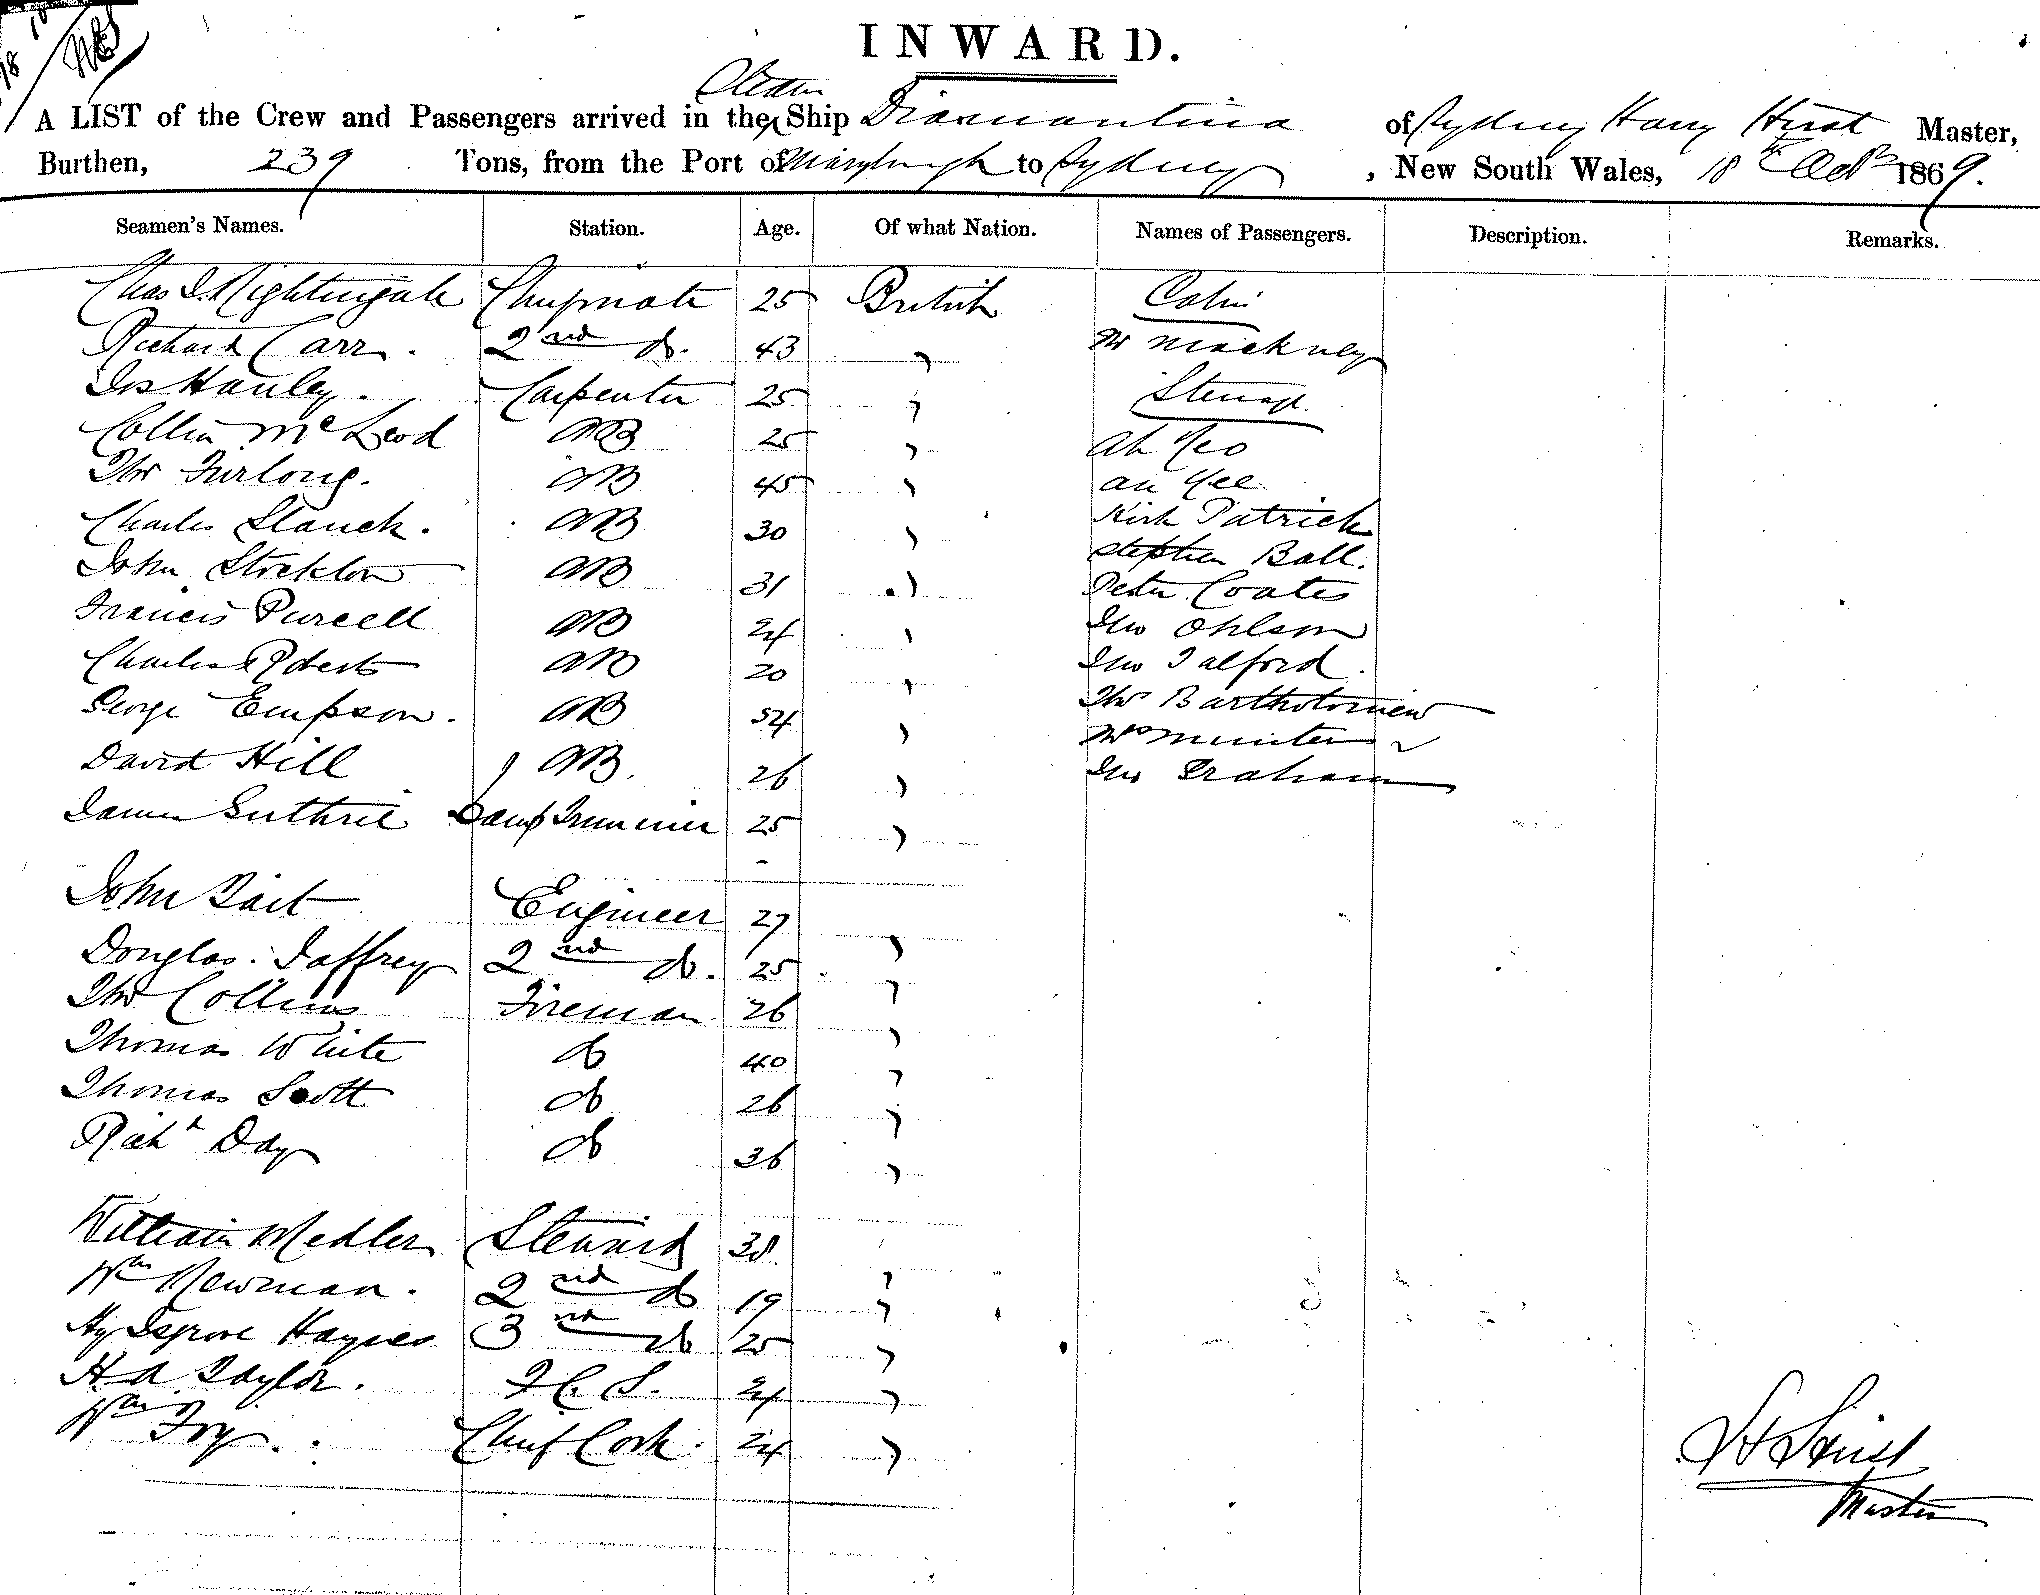 INWARD.
Steam
A LIST of the Crew and Passengers arrived in the Ship Diamantina of Sydney Harry Hirst Master,
Burthen, 239 Tons, from the Port of Maryborough to Sydney, New South Wales, 18th Octr 1869.
Seamen's Names. Station. Age. Of what Nation. Names of Passengers. Description. Remarks.
Chas Nightingale Chief mate 25 British Cabin
Richard Carr. 2nd do. 43 " Mr Mackney
Jas Hanley. Carpenter 25 " Steerage
Collin McLeod AB 25 " Ah Yeo
Thos Furlong. AB 45 " Ah Yee
Charles Stanek. AB 30 " Kirk Patrick
John Stockton AB 31 " Stephen Ball.
Francis Purcell AB 24 " Peter Coates
Charles Roberts AB 20 " Jno Ohlson
George Empson. AB 54 " Jno Talford.
David Hill AB. 26 " Thos Bartholomew
James Guthrie Lamp Trimmer 25 " Mrs Munster
Jno Graham
John Tait Engineer 27 "
Douglas Jaffrey 2nd do. 25 "
Thos Collins Fireman 26 "
Thomas White do 40 "
Thomas Scott do 26 "
Richd Day do 36 "
William Medler Steward 38 "
Wm Newman. 2nd do 19 "
Hy Isgrove Haynes 3rd do 25 "
H.A. Taylor. F.C.S. 24 "
Wm Fry. Chief Cook. 24 "
H Hirst
Master